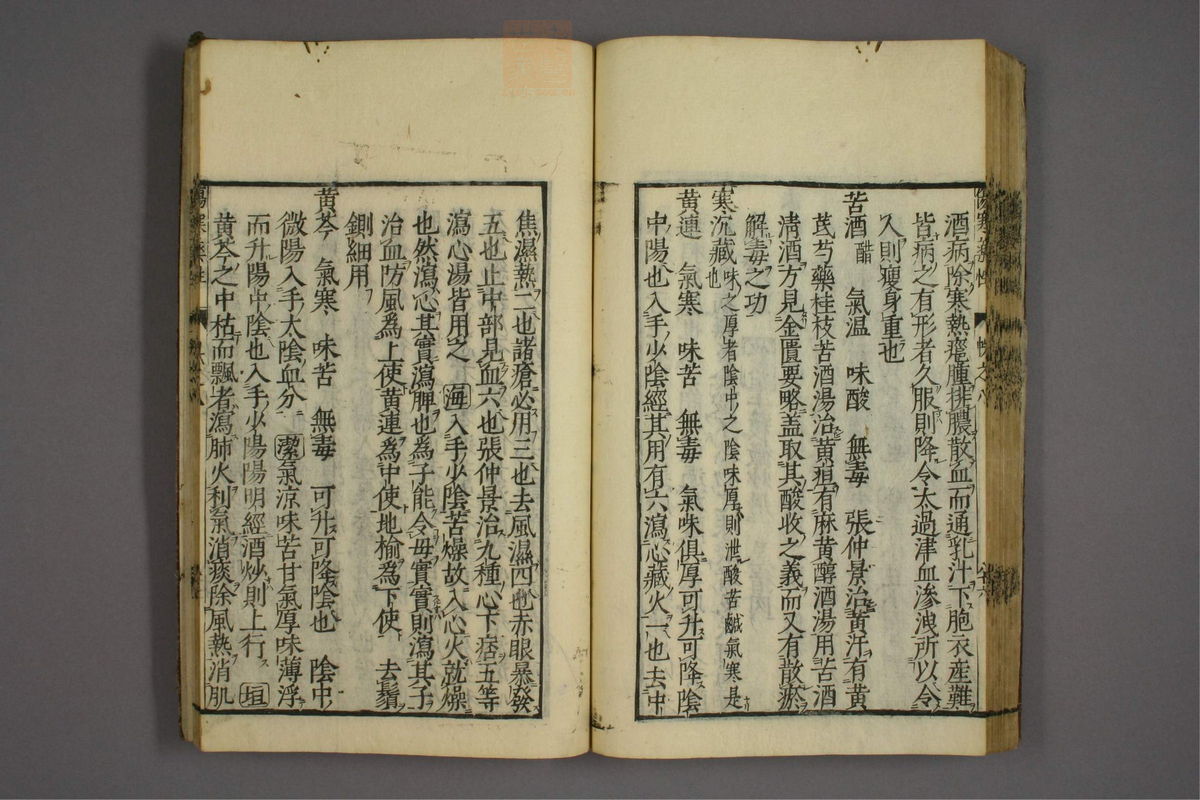 酒病除寒熱癰腫排膿散血而通乳汁下胞衣産難
皆病之有形者久服則降令太過津血滲洩所以令
人則瘦身重也
苦酒 醋 氣温 味酸 無毒 張仲景治黄汗有黄
芪芍藥桂枝苦酒湯治黄疸有麻黄醇酒湯用苦酒
清酒方見金匱要略盖取其酸收之義而又有散瘀
解毒之功
寒沉藏也味之厚者陰中之陰味厚則泄酸苦鹹氣寒是
黄連 氣寒 味苦 無毒 氣味俱厚可升可降陰
中陽也入手少陰經其用有六瀉心藏火一也去中
焦濕熱二也諸瘡必用三也去風濕四也赤眼暴發
五也止中部見血六也張仲景治九種心下痞五等
瀉心湯皆用之 海入手少陰苦燥故入心火就燥
也然瀉心其實瀉脾也為子能令母實實則瀉其子
治血防風為上使黄連為中使地榆為下使 去鬚
剉細用
黄芩 氣寒 味苦 無毒 可升可降陰也 陰中
微陽入手太陰血分 潔氣涼味苦甘氣厚味薄浮
而升陽中陰也入手少陽陽明經酒炒則上行 垣
黄芩之中枯而飄者瀉肺火利氣消痰除風熱消肌